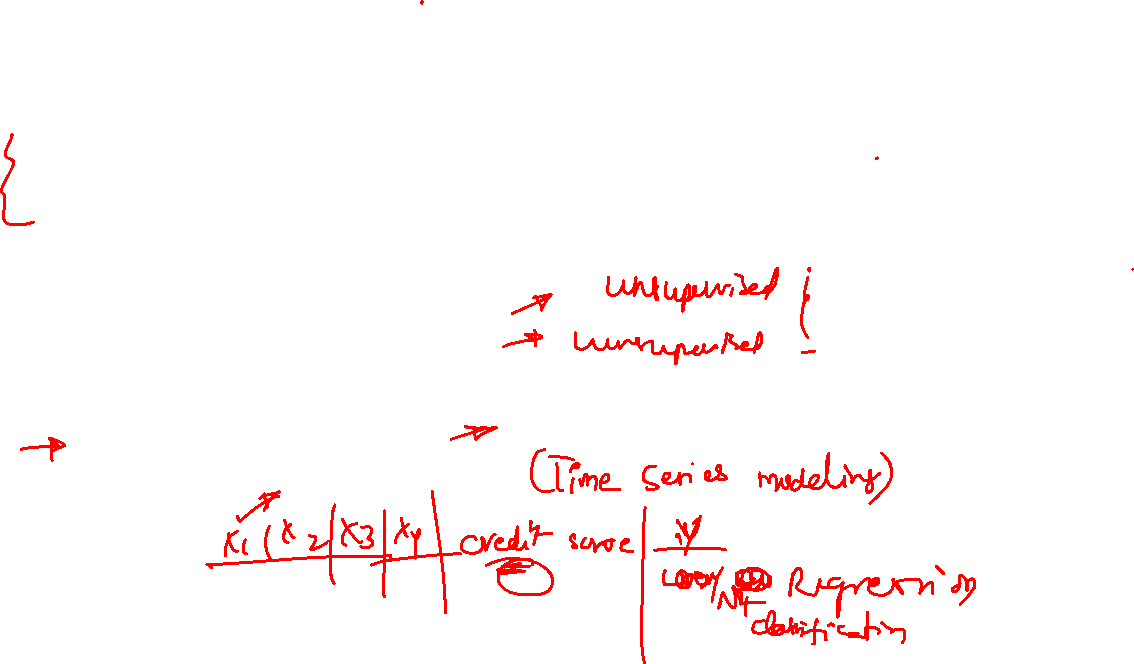 unsupervised
unsupervised
(Time series modeling)
x1 x2 x3 x4 credit score Y
Regression
classification